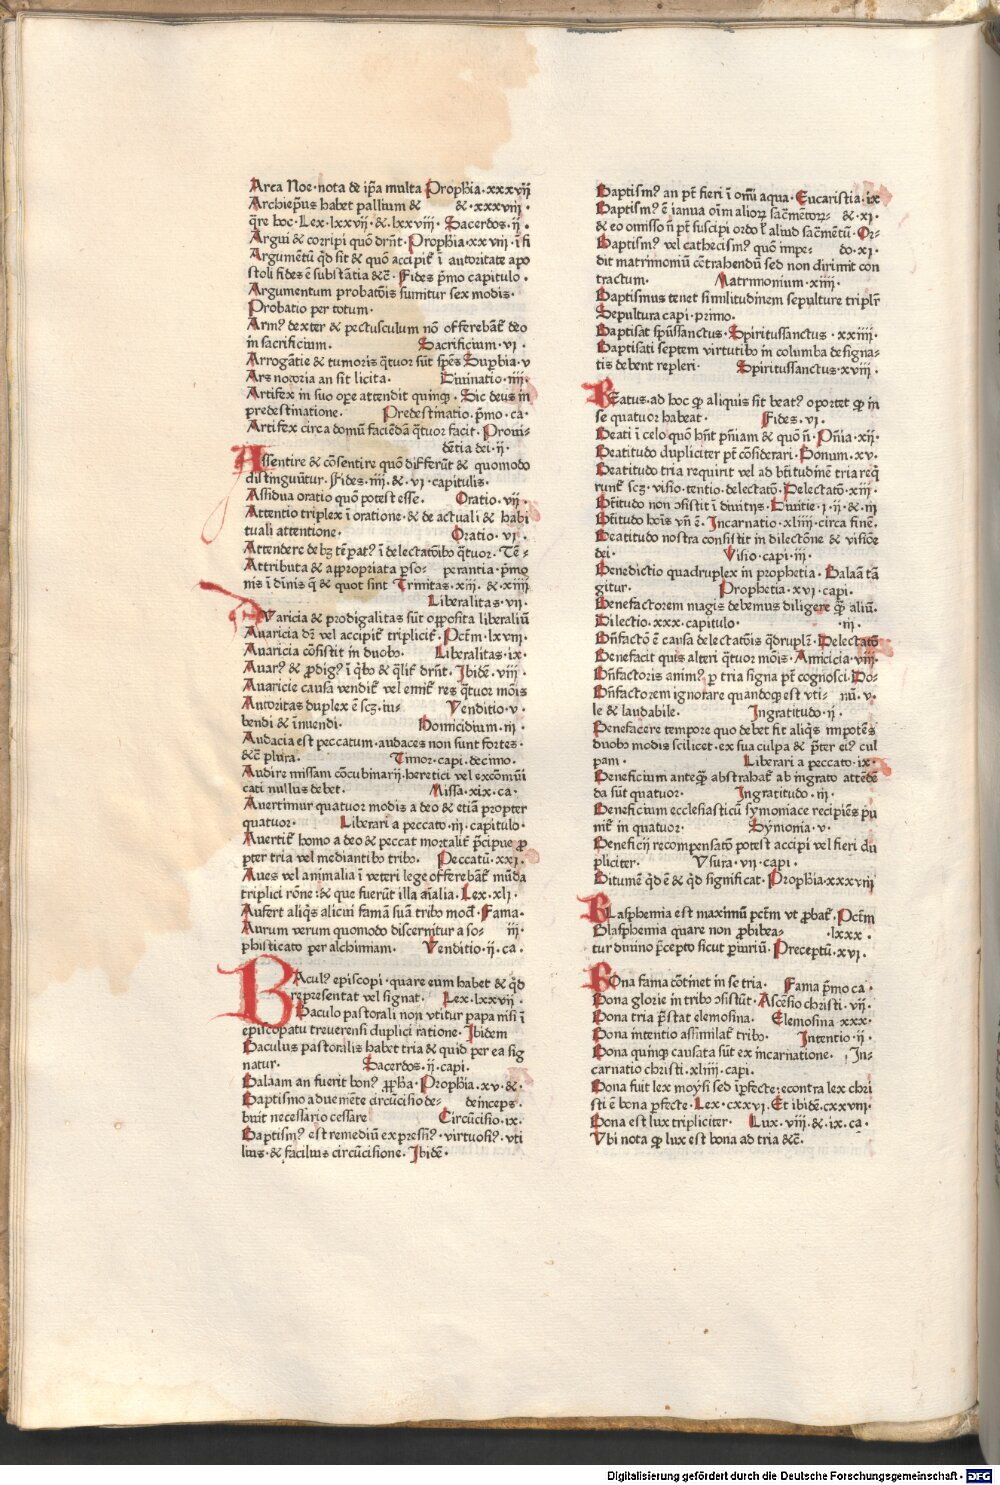 Arca Noe·nota de ip̄a multa Prophīa·xxxvij
Archiep̄us habet pallium & &·xxxviij·
q̄re hoc·Lex·lxxvij·&·lxxviij· Sacerdos·ij·
Argui & corripi quō dr̄nt·Prophīa·xxviij·ī fi
Argumētū q̄d sit & quō accipit̄ ī autoritate apo
stoli fides ē substātia &c̄· Fides p̄mo capitulo·
Argumentum probatōis sumitur sex modis·
Probatio per totum·
Arm⁹ dexter & pectusculum nō offerebāt̄ deo
in sacrificium. Sacrificium·vi·
Arrogātie & tumoris q̄tuor sūt sp̄es Supbia·v
Ars notoria an sit licita. Diuinatio·iiij·
Artifex in suo oꝑe attendit quinq̨·Sic deus in
predestinatione. Predestinatio·p̄mo·ca·
Artifex circa domū faciēdā q̄tuor facit·Proui-
dētia dei·ij·
Assentire & cōsentire quō differūt & quomodo
distinguūtur·Fides·iiij·&·vi·capitulis·
Assidua oratio quō potest esse. Oratio·vij·
Attentio triplex ī oratione·& de actuali & habi
tuali attentione· Oratio·vi·
Attendere debꝫ tē̄pat⁹ ī delectatōibꝰ q̄tuor·Tē-
Attributa & appropriata ꝑso- perantia·p̄mo
nis ī diuis q̄ & quot sint Trinitas·xij·&·xiiij
Liberalitas·vij·
AVaricia & prodigalitas sūt opposita liberaliū
Auaricia dꝫ vel accipit̄ triplicit̄·Pctm̄·lxviij·
Auaricia cōsistit in duobꝰ. Liberalitas·ix·
Auar⁹ & prodig⁹ ī q̄bꝰ & q̄lit̄ dr̄nt·Ibidē·viij·
Auaricie causa vendit̄ vel emit̄ res q̄tuor mōis
Autoritas duplex ē scꝫ·iu- Venditio·v·
bendi & īnuendi· Homicidium·iij·
Audacia est peccatum·audaces non sunt fortes·
&c̄ plura. Timor·capi·decimo.
Audire missam cōcubinarij·heretici vel excōmūi
cati nullus debet. Missa·xix·ca·
Auertimur quatuor modis a deo & etiā propter
quatuor· Liberari a peccato·iij·capitulo·
Auertit̄ homo a deo & peccat mortalit̄ p̄cipue ꝓ
pter tria vel mediantibꝰ tribꝰ. Peccatū·xxi·
Aues vel animalia ī veteri lege offerebāt̄ mūda
triplici rōne:& que fuerūt illa aīalia·Lex·xli·
Aufert aliq̄s alicui famā suā tribꝰ mod̄·Fama·
Aurum verum quomodo discernitur a so- iij·
phisticato per alchimiam· Venditio·ij·ca·
BAcul⁹ episcopi·quare eum habet & q̄d
representat vel signat. Lex·lxxvij·
Baculo pastorali non vtitur papa nisi ī
episcopatu treuerensi duplici ratione·Ibidem
Baculus pastoralis habet tria & quid per ea sig
natur. Sacerdos·ij·capi.
Balaam an fuerit bon⁹ ꝓph̄a·Prophīa·xv·&·
Baptismo aduemēte circūcisio de- deinceps·
buit necessario cessare Circūcisio·ix·
Baptism⁹ est remediū expressi⁹·virtuosi⁹·vti
lius·& facilius circūcisione·Ibidē·
Baptism⁹ an pt̄ fieri ī omī aqua·Eucaristia·ix
Baptism⁹ ē ianua oīm alioꝝ sac̄mētoꝝ· &·xi·
& eo omisso ñ pt̄ suscipi ordo ł aliud sac̄mētū·Or-
Baptism⁹ vel cathecism⁹ quō impe- do·xi·
dit matrimoniū cōtrahendū sed non dirimit con
tractum. Matrimonium·xiiij·
Baptismus tenet similitudinem sepulture triplr̄
Sepultura capi·primo.
Baptisat spūssanctus·Spiritussanctus·xxiiij·
Baptisati septem virtutibꝰ in columba designa-
tis debent repleri· Spiritussanctus·xviij·
BEatus·ad hoc ꝙ aliquis sit beat⁹ oportet ꝙ in
se quatuor habeat· Fides·vi·
Beati ī celo quō hn̄t pn̄iam & quō ñ·Pn̄ia·xij·
Beatitudo dupliciter pt̄ cōsiderari·Bonum·xv·
Beatitudo tria requirit vel ad bt̄itudinē tria req̄
runt̄ scꝫ·visio·tentio·delectatō·Delectatō·xiij·
Bt̄itudo non ꝯsistit ī diuitijs·Diuitie·i·ij·&·iij
Bt̄itudo hoīs vn̄ ē·Incarnatio·xliiij·circa finē.
Beatitudo nostra consistit in dilectōne & visiōe
dei· Visio·capi·iij·
Benedictio quadruplex in prophetia·Balaā tā
gitur. Prophetia·xvi·capi.
Benefactorem magis debemus diligere q̄ꝫ aliū.
Dilectio·xxx·capitulo· iij·
Bn̄factō ē causa delectatōis q̄druplr̄·Delectatō
Benefacit quis alteri q̄tuor mōis·Amicicia·viij·
Bn̄factoris anim⁹ ꝑ tria signa pt̄ cognosci·Do-
Bn̄factorem ignorare quandoqꝫ est vti- nū·v·
le & laudabile. Ingratitudo·ij·
Benefacere tempore quo debet fit aliq̄s impotēs
duobꝰ modis scilicet·ex sua culpa & p̄ter ei⁹ cul
pam· Liberari a peccato·ix·
Beneficium anteq̄ꝫ abstrahat̄ ab ingrato attēdē
da sūt quatuor· Ingratitudo·iij·
Beneficium ecclesiasticū symoniace recipiēs pu
nit̄ in quatuor· Symonia·v·
Beneficij recompensatō potest accipi vel fieri du
pliciter. Vsura·vij·capi·
Bitumē q̄d ē & q̄d significat·Prophīa·xxxviij
BLasphemia est maximū pctm̄ vt ꝓbat̄·Pctm̄
Blasphemia quare non ꝓhibea- ·lxxx·
tur diuino p̄cepto sicut ꝑiuriū·Preceptū·xvi·
BOna fama cōtinet in se tria. Fama p̄mo ca·
Bona glorie in tribꝰ ꝯsistūt·Ascēsio christi·vij·
Bona tria p̄stat elemosina. Elemosina xxx·
Bona intentio assimilat̄ tribꝰ· Intentio·ij·
Bona quinqꝫ causata sūt ex incarnatione· ·In-
carnatio christi·xliiij·capi.
Bona fuit lex moysi sed īꝑfecte:econtra lex chri
sti ē bona ꝑfecte·Lex·cxxvi·Et ibidē·cxxviij·
Bona est lux tripliciter· Lux·viij·&·ix·ca·
Vbi nota ꝙ lux est bona ad tria &c̄·
Digitalisierung gefördert durch die Deutsche Forschungsgemeinschaft - DFG